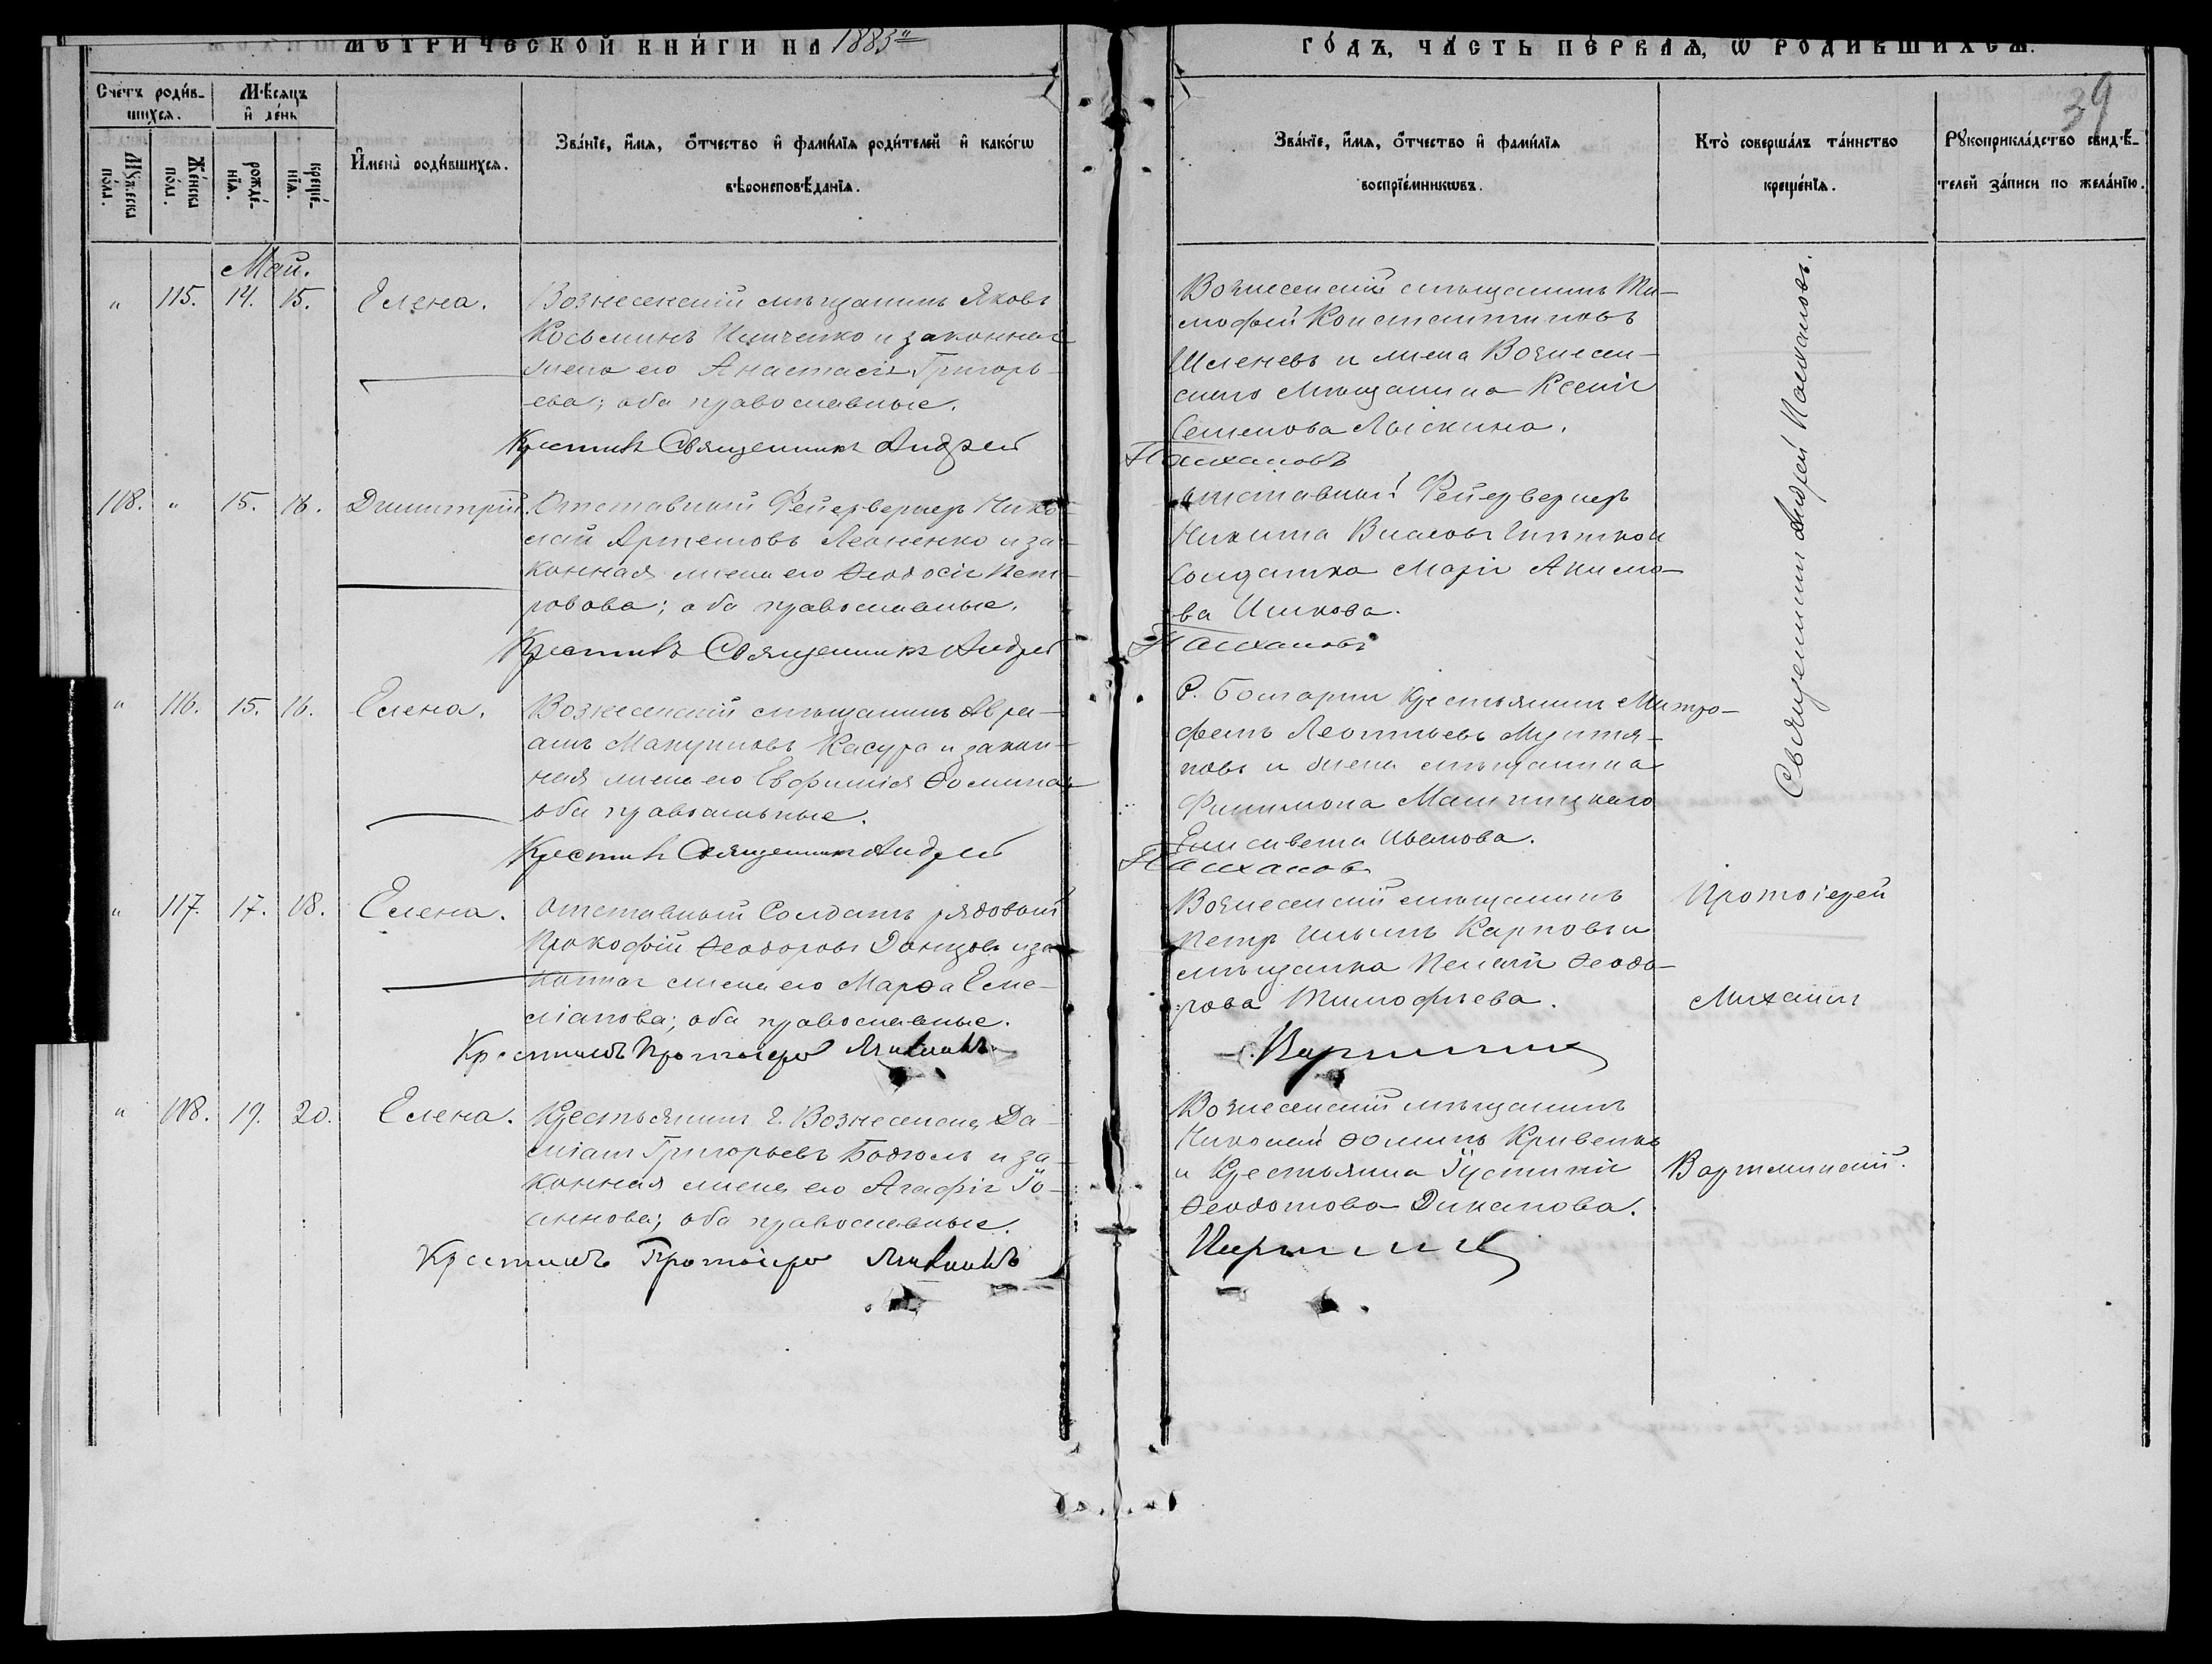 МЕТРИЧЕСКОЙ КНИГИ НА 1883й
ГОДЪ, ЧАСТЬ ПЕРВАЯ, Ѡ РОДИВШИХСЯ.
39
Счетъ родив-
шихся.
Мѣсяцъ
и день
Мужеска
полъ.
Женска
полъ.
рожде-
нія.
креще-
нія.
Имена родившихся.
Званіе, имя, отчество и фамилія родителей и какогѡ
вѣроисповѣданія.
Званіе, имя, отчество и фамилія
воспріемникѡвъ.
Кто совершалъ таинство
крещенія.
Рукоприкладство свидѣ-
телей записи по желанію.
Май.
" 115. 14. 15. Елена.
Вознесенскій мѣщанинъ Яковъ
Косьминъ и законная
жена его Анастасія Григорь-
ева; оба православные.
Крестилъ Священникъ Андрей
Палхановъ
Вознесенскій мѣщанинъ Ти-
мофей Константиновъ
Шленевъ и жена Вознесен-
скаго мѣщанина Ксенія
Семенова Лыскина.
Священникъ Андрей Палхановъ.
108. " 15. 16. Димитрій.
Отставной Фейерверкеръ Нико-
лай Артемовъ Леоненко и за-
конная жена его Ѳеодосія Пет-
ровова; оба православные.
Крестилъ Священникъ Андрей
Палхановъ
отставной Фейерверкеръ
Никита Власовъ
Солдатка Марія Акимо-
ва Ишкова.
" 116. 15. 16. Елена.
Вознесенскій мѣщанинъ Авра-
амъ Касура и закон-
ная жена его Евфимія Ѳомина
оба православные.
Крестилъ Священникъ Андрей
Палхановъ
С. Болгарки Крестьянинъ Митро-
фанъ Леонтьевъ
новъ и жена мѣщанина
Филимона
Елисавета Иванова.
" 117. 17. 18. Елена.
отставной Солдатъ рядовой
Прокофій Ѳеодоровъ Донцовъ и за-
конная жена его Марѳа Еме-
ліанова; оба православные.
Крестилъ Протоіерей Михаилъ
Вознесенскій мѣщанинъ
Петръ Ильинъ Карповъ и
мѣщанка Пелагія Ѳеодо-
рова Тимофѣева.
Протоіерей
Михаилъ
" 118. 19. 20. Елена.
Крестьянинъ г. Вознесенска Да-
міанъ Григорьевъ и за-
конная жена его Агафія Іо-
аннова; оба православные.
Крестилъ Протоіерей Михаилъ
Вознесенскій мѣщанинъ
Николай Ѳоминъ Кривенко
и Крестьянка Іустинія
Ѳеодотова Диканова.